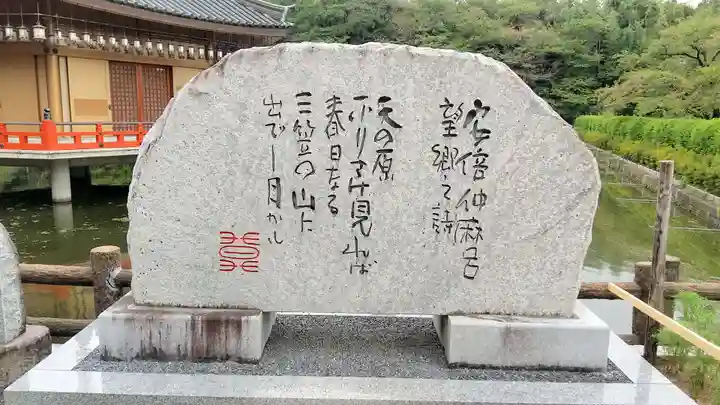 安倍仲麻呂
望郷之詩
天の原
ふりさけ見れば
春日なる
三笠の山に
出でし月かも